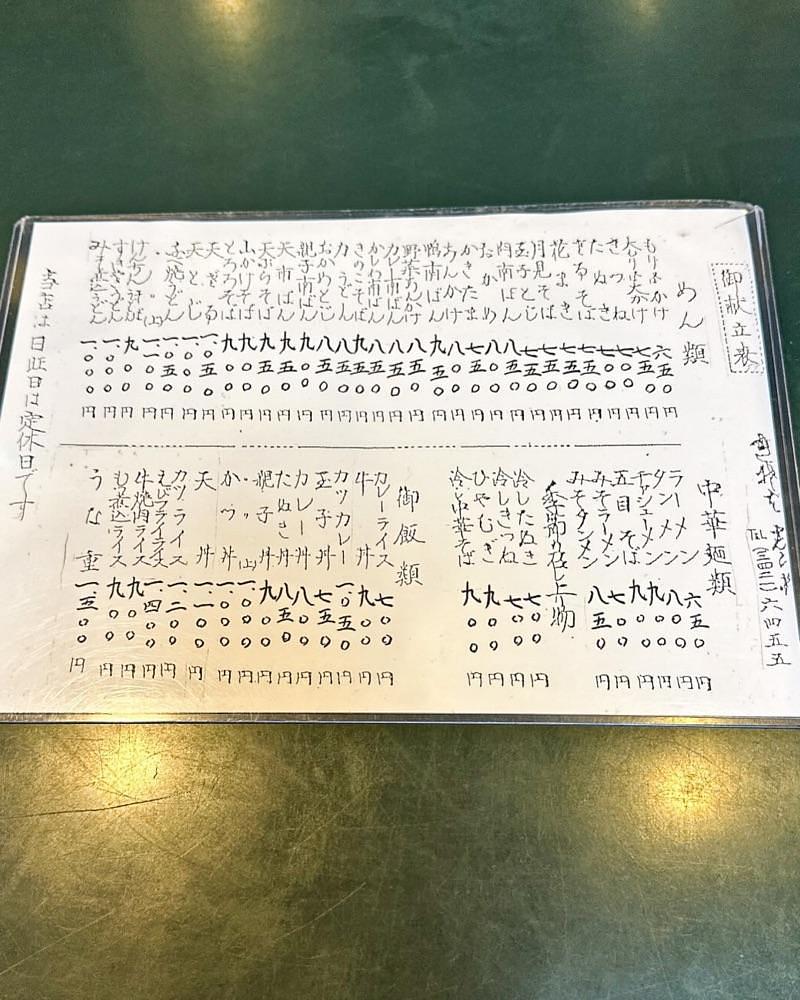 御献立表
めん類
もり・かけ 六五〇円
大もり・大かけ 七五〇円
きつね 七〇〇円
たぬき 七〇〇円
ざるそば 七五〇円
花まき 七五〇円
月見そば 七五〇円
玉子とじ 七五〇円
肉南ばん 八五〇円
おかめ 八〇〇円
かきたま 七五〇円
あんかけ 八〇〇円
鴨南ばん 九五〇円
野菜あんかけ 八五〇円
カレー南ばん 八五〇円
かしわ南ばん 八〇〇円
きのこそば 九〇〇円
力うどん 八〇〇円
おかめとじ 八五〇円
親子南ばん 九〇〇円
天南ばん 九〇〇円
天ぷらそば 九五〇円
山かけそば 九〇〇円
とろろそば 九〇〇円
天ざる 一、五〇円
天とじ 一、〇〇円
鍋焼うどん 一、〇五〇円
〃(上)
けんちんそば 九〇〇円
すきやきうどん 一、〇〇〇円
みそ煮込うどん 一、〇〇〇円
TEL(三四三二)六四五五
中華麺類
ラーメン 六五〇円
タンメン 八〇〇円
チャーシューメン 九〇〇円
五目そば 九〇〇円
みそラーメン 七五〇円
みそタンメン 八五〇円
冷したぬき 七〇〇円
冷しきつね 七〇〇円
ひやむぎ 九〇〇円
冷し中華そば 九〇〇円
御飯類
カレーライス 七〇〇円
牛丼 九〇〇円
カツカレー 一、〇五〇円
玉子丼 七五〇円
カレー丼 八五〇円
たぬき丼 八五〇円
親子丼 九〇〇円
〃(上) 一、〇〇〇円
かつ丼 一、〇〇〇円
天丼 一、一〇〇円
カツライス 一、二〇〇円
えびフライライス 一、四〇〇円
牛焼肉ライス 九〇〇円
もつ煮込ライス 九〇〇円
うな重 一、五〇〇円
当店は日曜日は定休日です